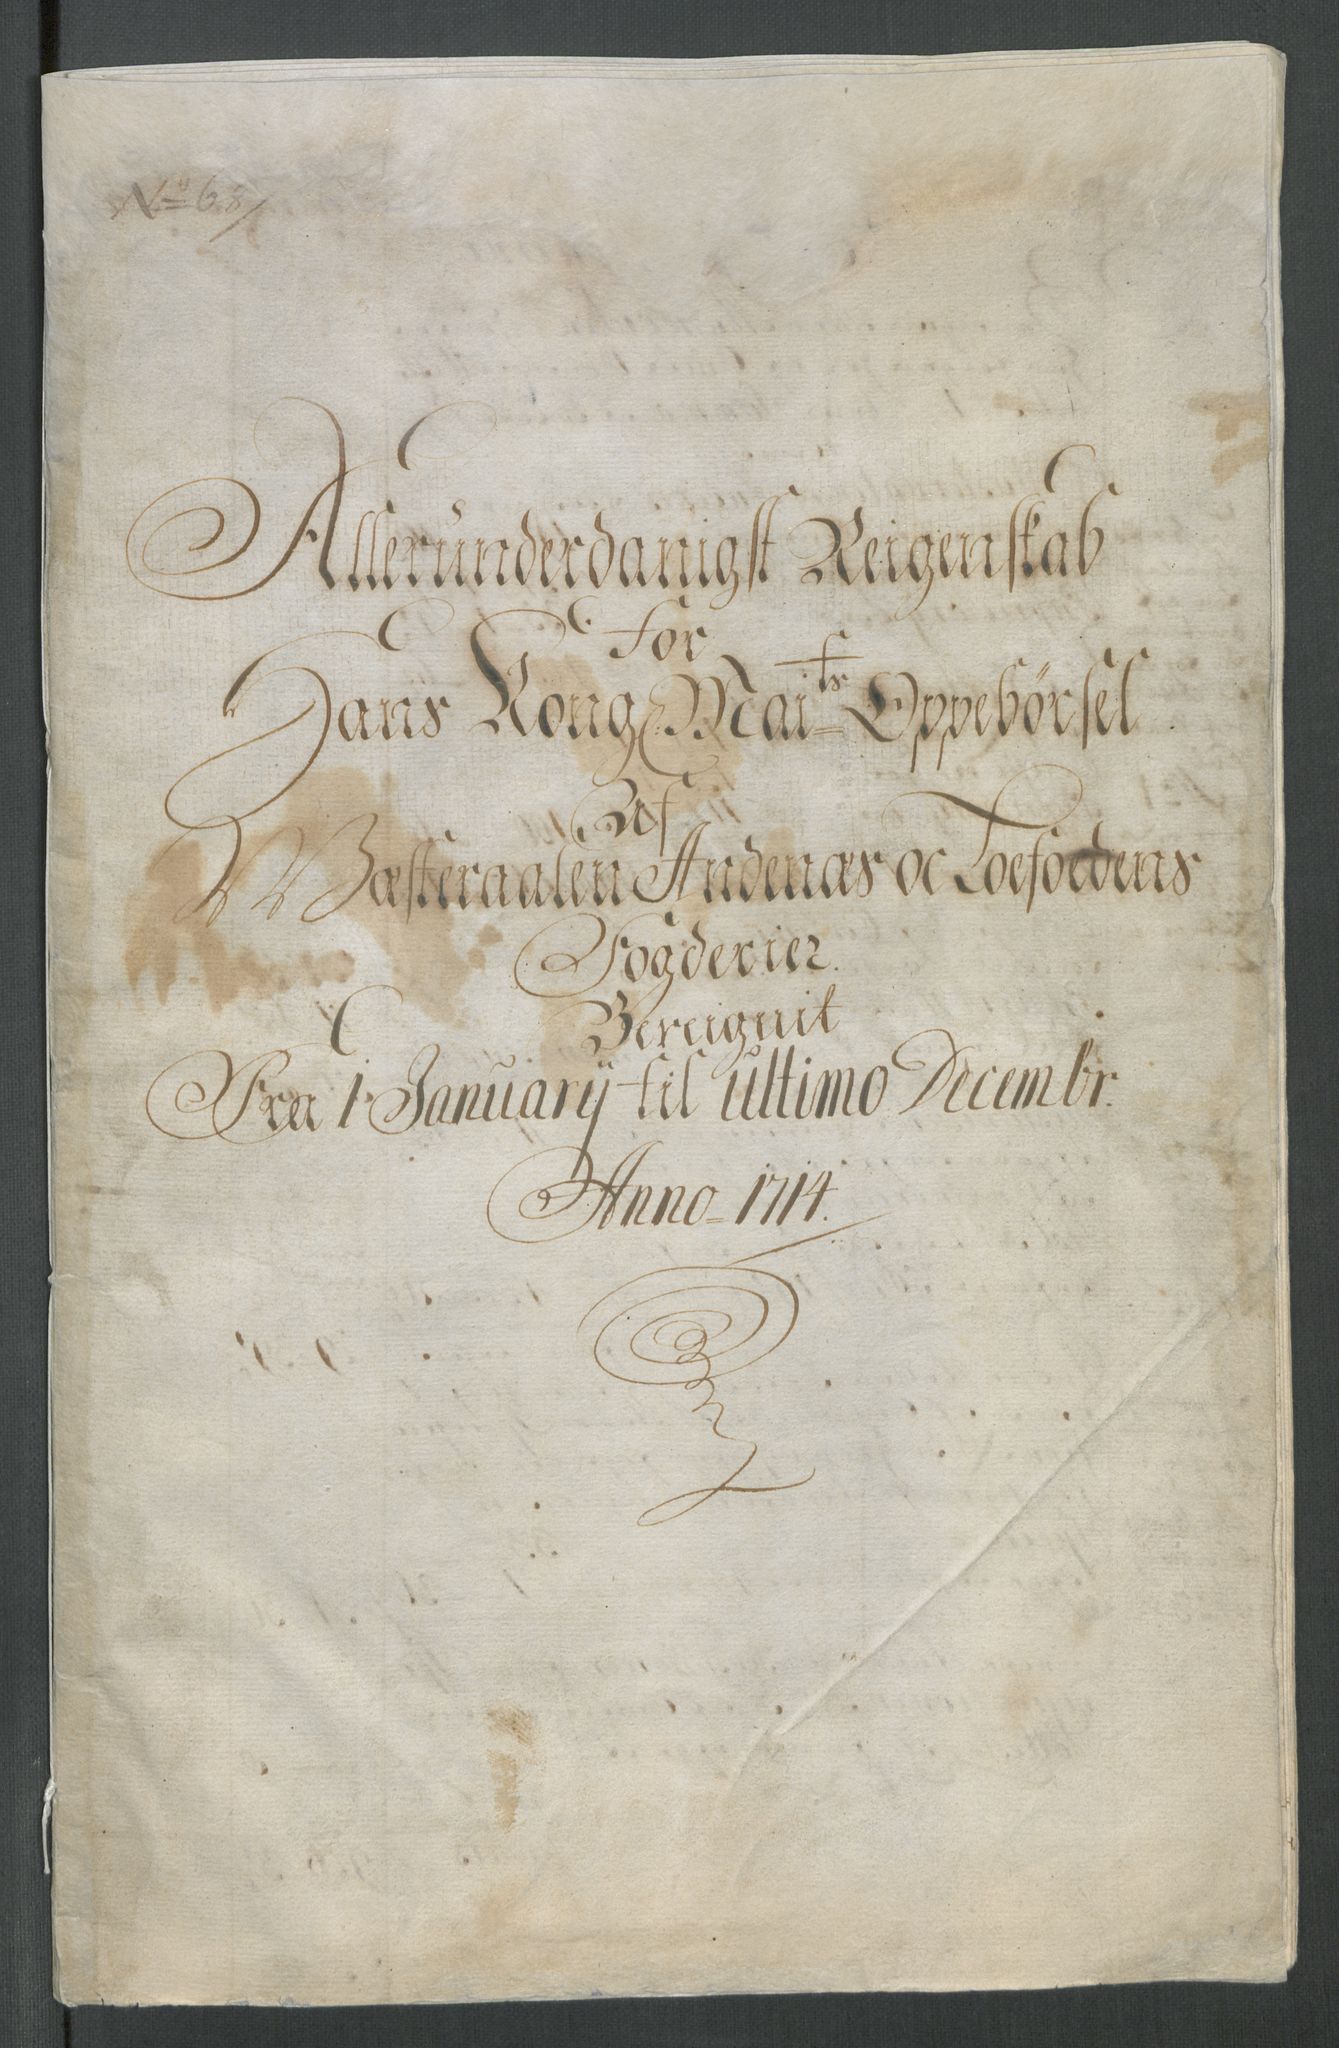 No 68/
Allerunderdanigst Reigenskab
for
Hans Kong Maits Oppebörsel
Af
Wæsteraalen Andenæs oc Loefoedens
Fogderier.
Bereignit
Fra 1 January til ultimo Decembr.
Anno 1714.